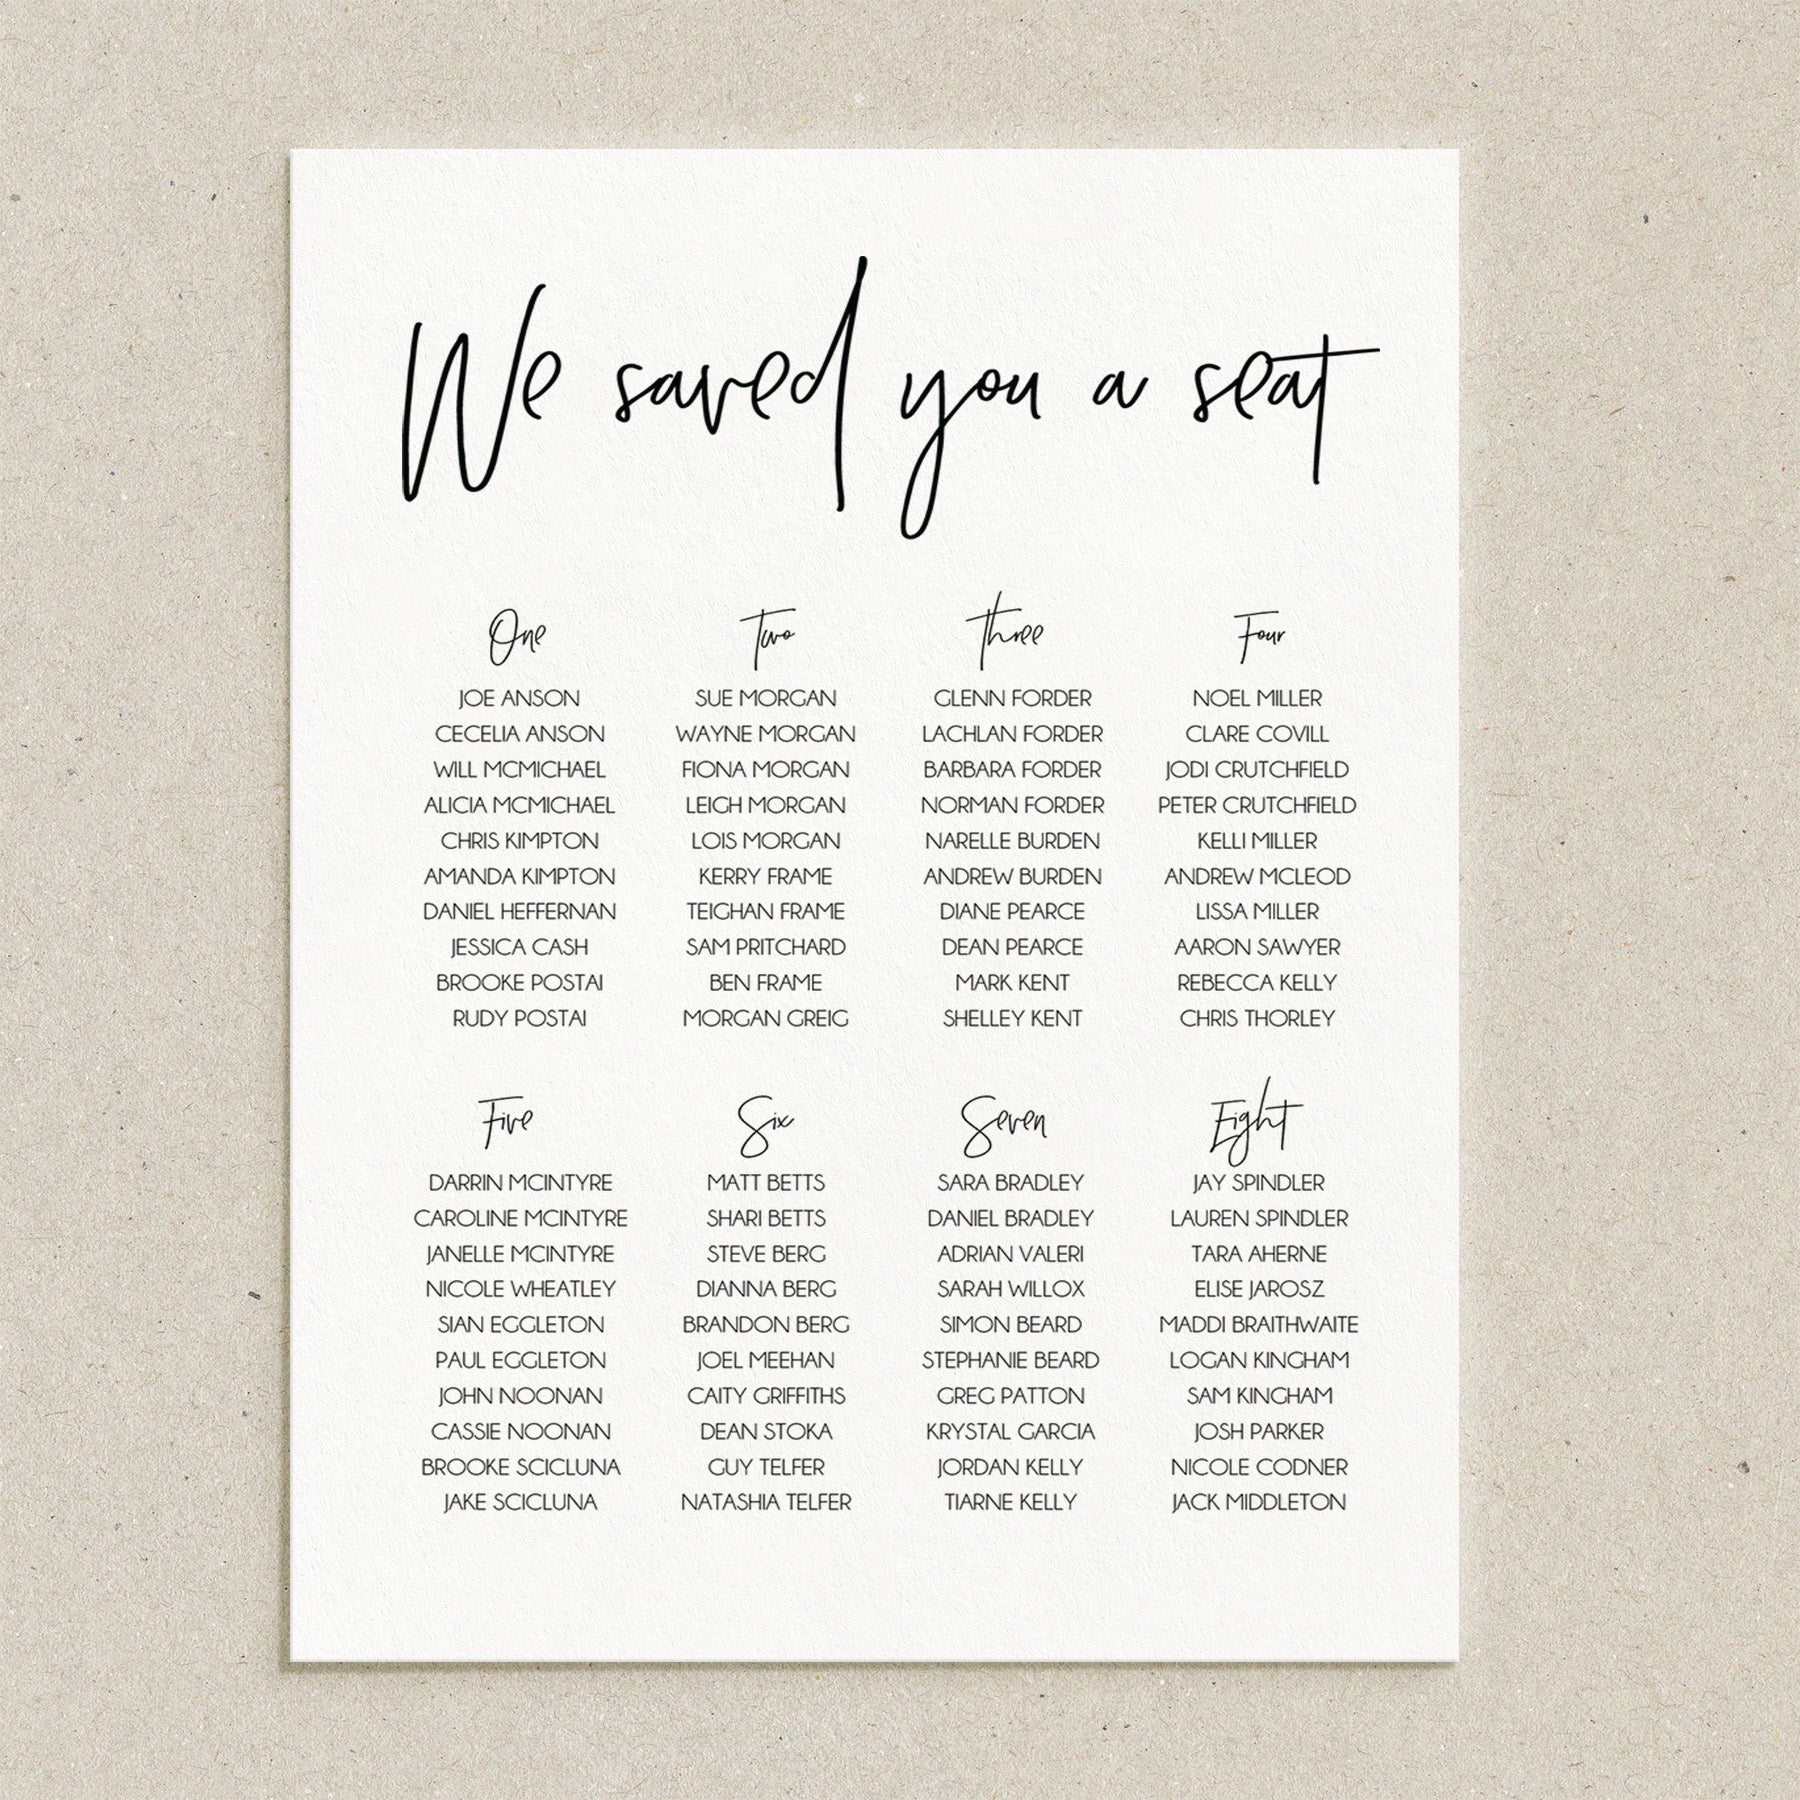 We saved you a seat
One
JOE ANSON
CECELIA ANSON
WILL MCMICHAEL
ALICIA MCMICHAEL
CHRIS KIMPTON
AMANDA KIMPTON
DANIEL HEFFERNAN
JESSICA CASH
BROOKE POSTAI
RUDY POSTAI
Two
SUE MORGAN
WAYNE MORGAN
FIONA MORGAN
LEIGH MORGAN
LOIS MORGAN
KERRY FRAME
TEIGHAN FRAME
SAM PRITCHARD
BEN FRAME
MORGAN GREIG
Three
GLENN FORDER
LACHLAN FORDER
BARBARA FORDER
NORMAN FORDER
NARELLE BURDEN
ANDREW BURDEN
DIANE PEARCE
DEAN PEARCE
MARK KENT
SHELLEY KENT
Four
NOEL MILLER
CLARE COVILL
JODI CRUTCHFIELD
PETER CRUTCHFIELD
KELLI MILLER
ANDREW MCLEOD
LISSA MILLER
AARON SAWYER
REBECCA KELLY
CHRIS THORLEY
Five
DARRIN MCINTYRE
CAROLINE MCINTYRE
JANELLE MCINTYRE
NICOLE WHEATLEY
SIAN EGGLETON
PAUL EGGLETON
JOHN NOONAN
CASSIE NOONAN
BROOKE SCICLUNA
JAKE SCICLUNA
Six
MATT BETTS
SHARI BETTS
STEVE BERG
DIANNA BERG
BRANDON BERG
JOEL MEEHAN
CAITY GRIFFITHS
DEAN STOKA
GUY TELFER
NATASHIA TELFER
Seven
SARA BRADLEY
DANIEL BRADLEY
ADRIAN VALERI
SARAH WILLOX
SIMON BEARD
STEPHANIE BEARD
GREG PATTON
KRYSTAL GARCIA
JORDAN KELLY
TIARNE KELLY
Eight
JAY SPINDLER
LAUREN SPINDLER
TARA AHERNE
ELISE JAROSZ
MADDI BRAITHWAITE
LOGAN KINGHAM
SAM KINGHAM
JOSH PARKER
NICOLE CODNER
JACK MIDDLETON